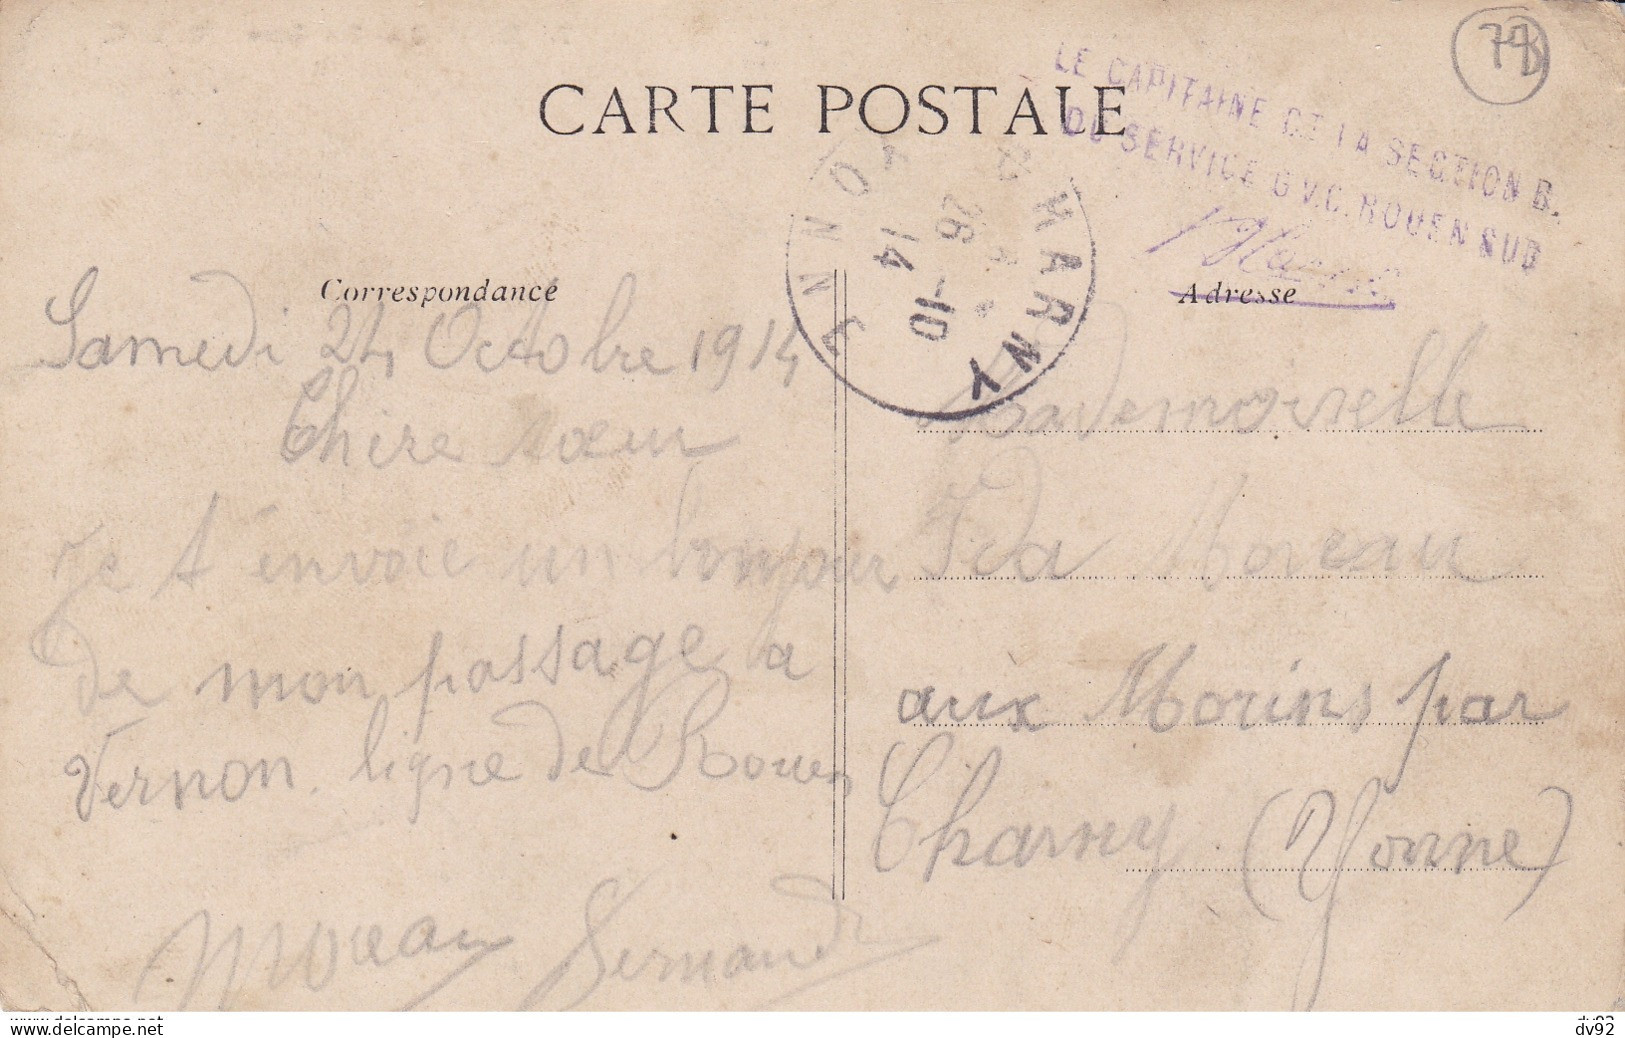 CARTE POSTALE
78
LE CAPITAINE DE LA SECTION B.
DU SERVICE G.V.C. ROUEN SUD
CHARNY
26 -10
14
YONNE
Correspondance
Adresse
Samedi 24 Octobre 1914
Chère sœur
Je t'envoie un bonjour
de mon passage a
Vernon. ligne de Rouen
Moreau Fernand
Mademoiselle
Ida Moreau
aux Morins par
Charny (Yonne)
www.delcampe.net
dv92
dv92